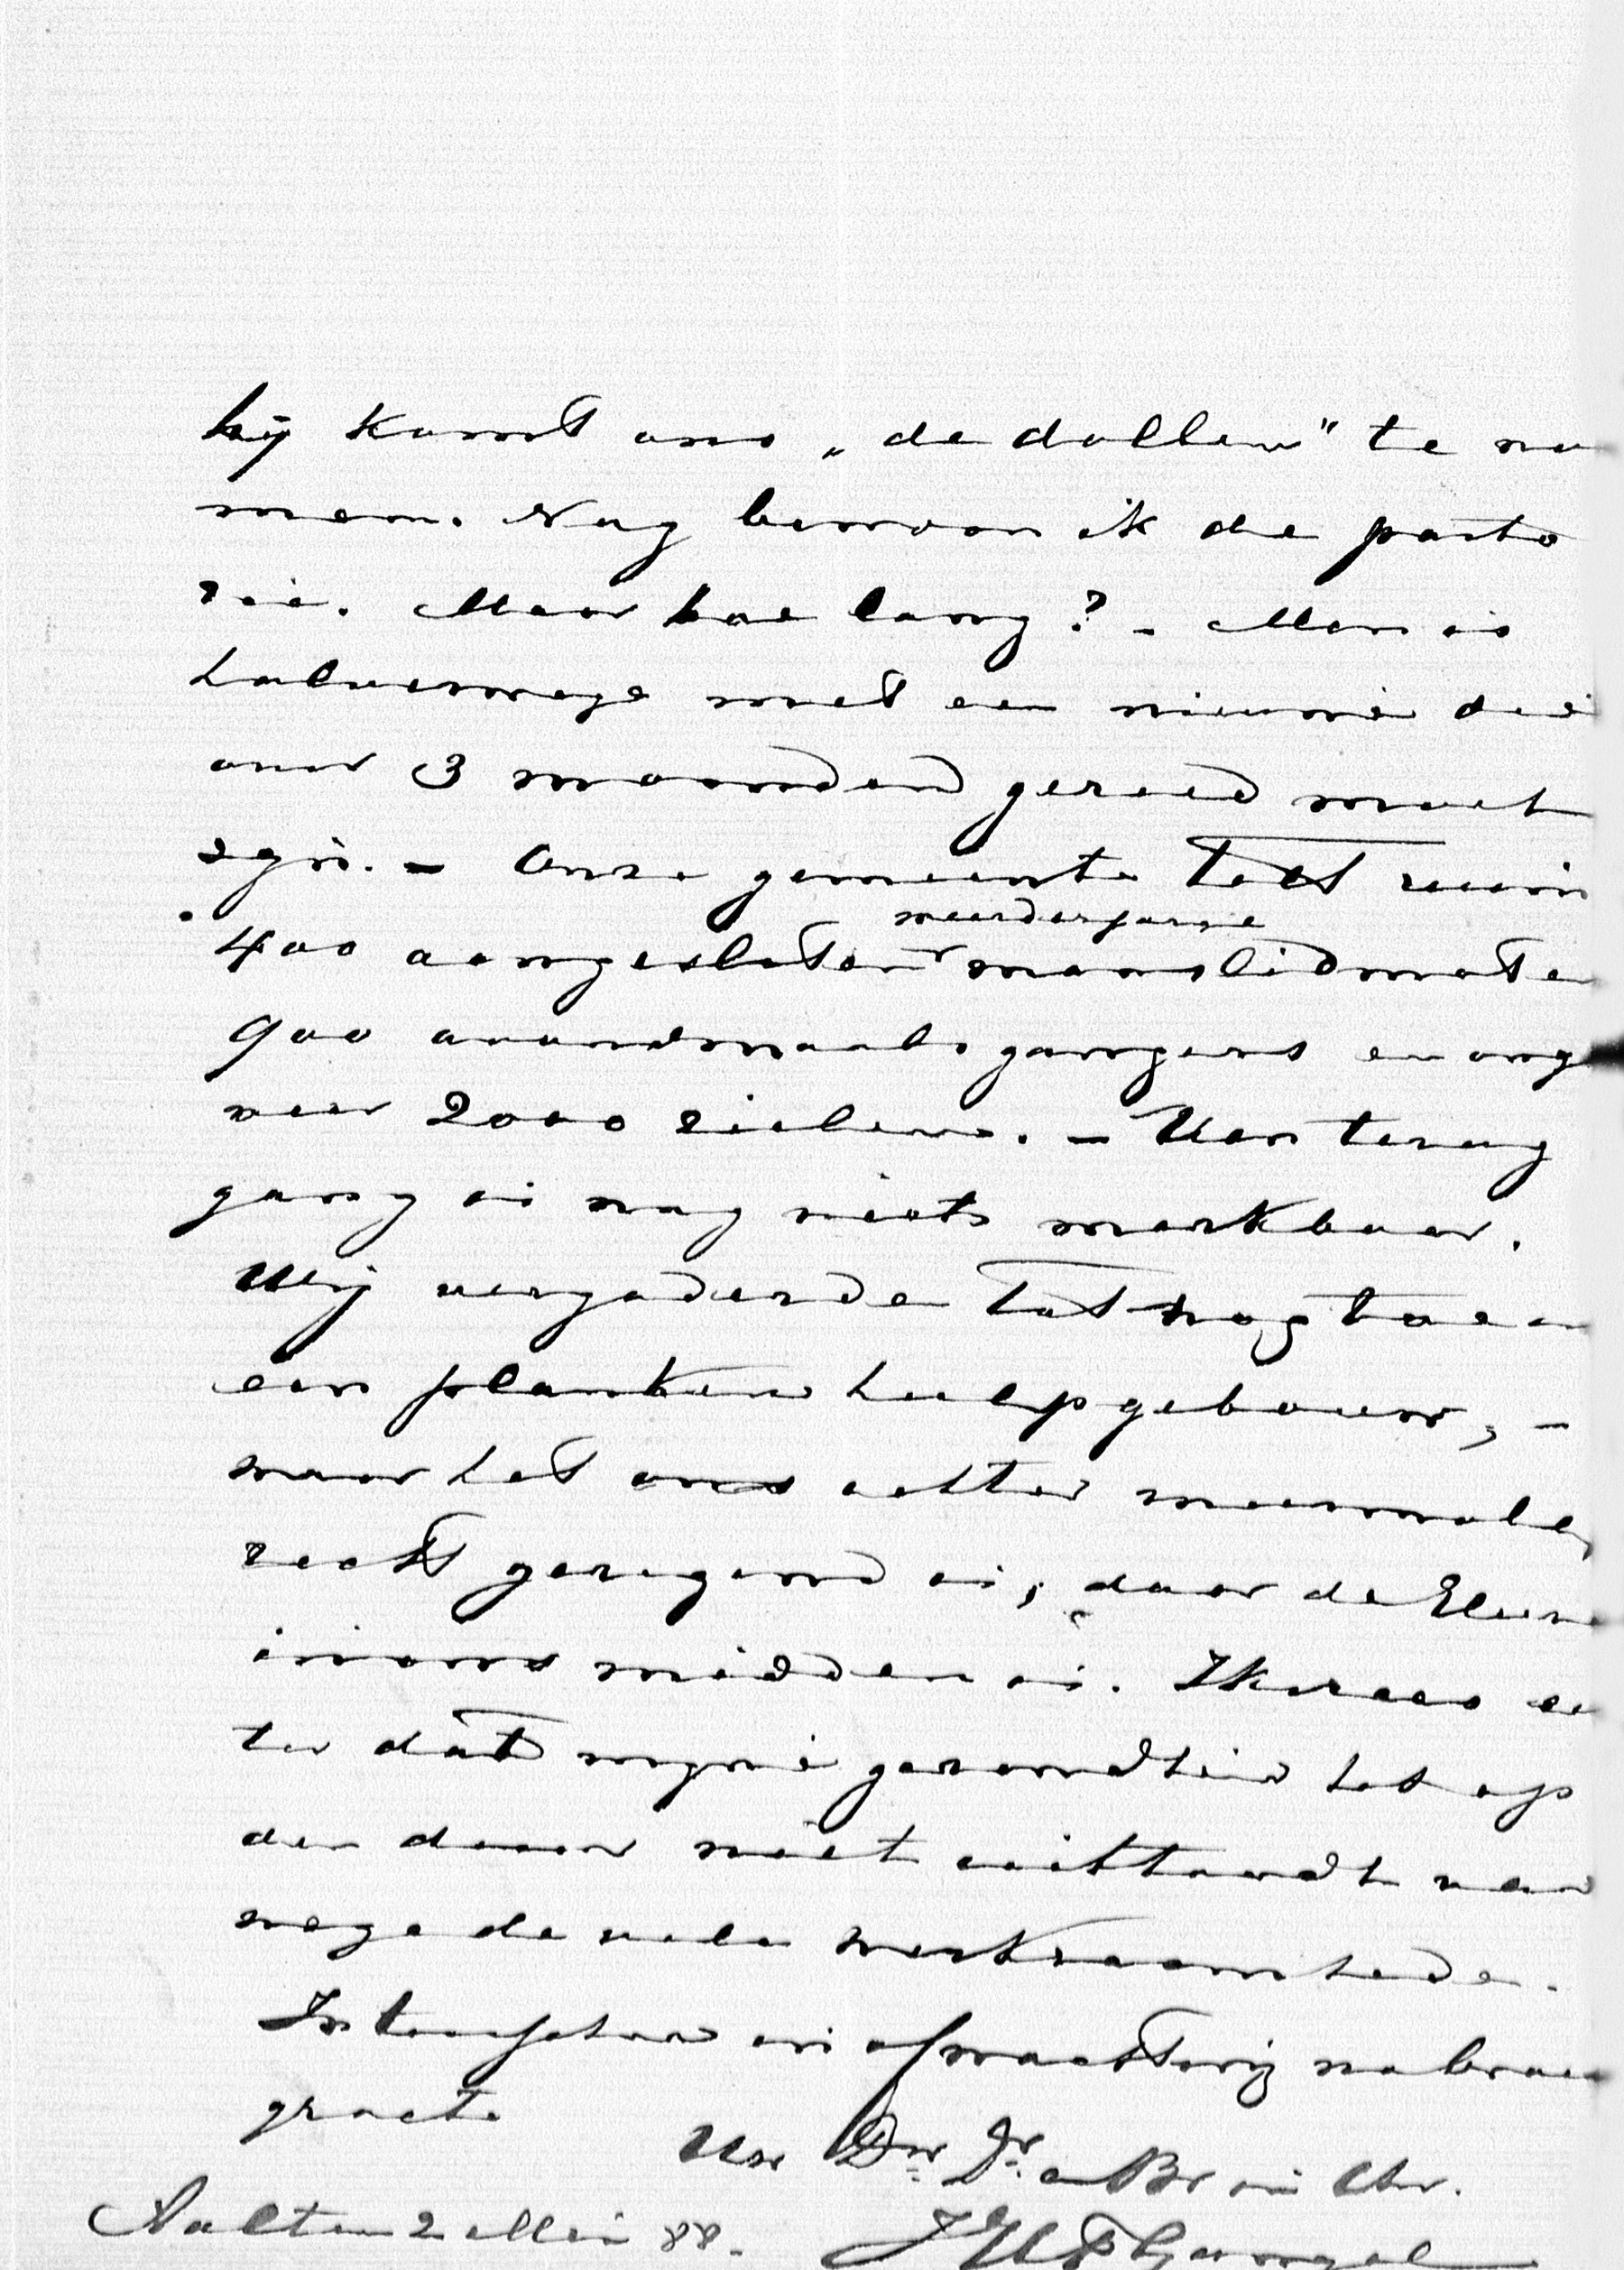 hij komt ons „de dollen" te no
men. Nog bewoon ik de pasto
rie. Maar hoe lang? - Men is
halverwege met een nieuwe die
over 3 maanden gereed moet
zijn. - Onze gemeente telt ruim
400 aangesloten meerderjarige manslidmaten
900 avondmaalsgangers en onge
veer 2000 zielen. - Van terug
gang is nog niets merkbaar.
Wij vergaderde tot nog toe in
een planken hulpgebouw, -
waar het ons echter meermalen
recht gezegend is, daar de Heere
in ons midden is. Ik vrees ech
ter dat mijne gezondheid het op
den duur niet uithoudt van
wege de vele werkzaamheden.
Intusschen en afwachting na broeder
groete
Uw Dw. Dr. en Br in Chr.
Aalten 2 Mei 88.